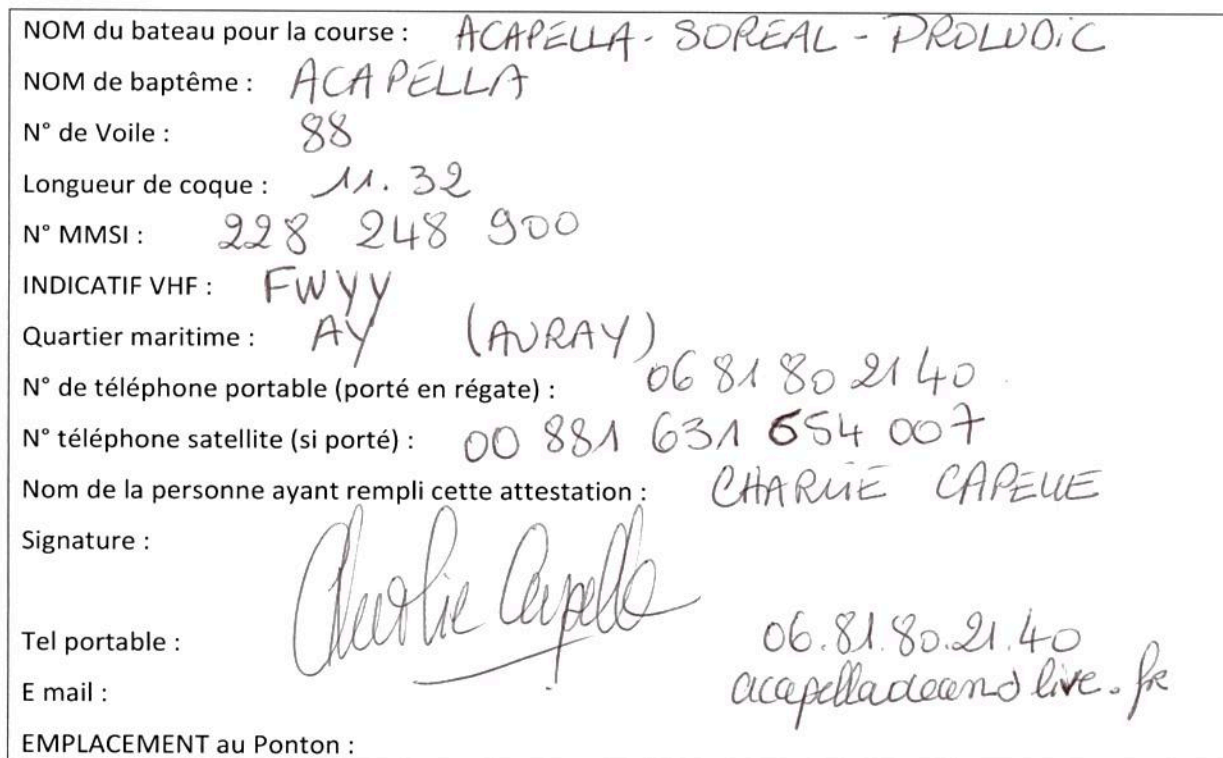 NOM du bateau pour la course : ACAPELLA - SOREAL - PROLUDIC
NOM de baptême : ACAPELLA
N° de Voile : 88
Longueur de coque : 11.32
N° MMSI : 228 248 900
INDICATIF VHF : FWYY
Quartier maritime : AY (AURAY)
N° de téléphone portable (porté en régate) : 06 81 80 21 40
N° téléphone satellite (si porté) : 00 881 631 654 007
Nom de la personne ayant rempli cette attestation : CHARLIE CAPELLE
Signature : Charlie Capelle
Tel portable : 06.81.80.21.40
E mail : live.fr
EMPLACEMENT au Ponton :